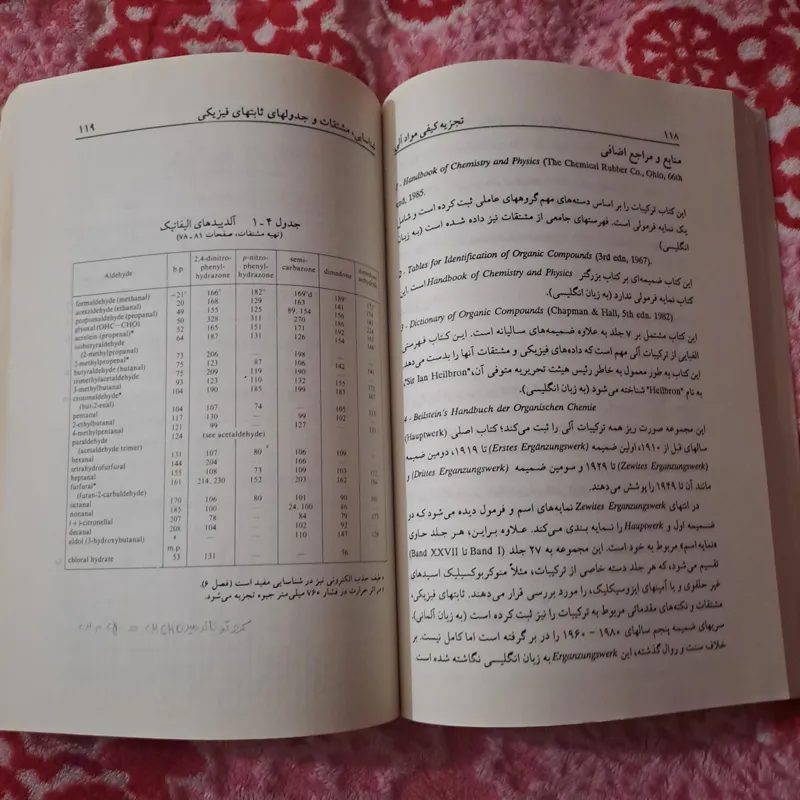 ۱۱۸
تجزیه کیفی مواد آلی
منابع و مراجع اضافی
1 - Handbook of Chemistry and Physics (The Chemical Rubber Co., Ohio, 66th
1985.
این کتاب ترکیبات را بر اساس دسته‌های مهم گروههای عاملی ثبت کرده است و شامل
یک نمایه فرمولی است. فهرستهای جامعی از مشتقات نیز داده شده است (به زبان
انگلیسی)
2 - Tables for Identification of Organic Compounds (3rd edn, 1967).
این کتاب ضمیمه‌ای بر کتاب بزرگتر Handbook of Chemistry and Physics است. این
کتاب نمایه فرمولی ندارد (به زبان انگلیسی).
3 - Dictionary of Organic Compounds (Chapman & Hall, 5th edn. 1982)
این کتاب مشتمل بر ۷ جلد به علاوه ضمیمه‌های سالیانه است. این کتاب فهرستی
الفبایی از ترکیبات آلی مهم است که داده‌های فیزیکی و مشتقات آنها را بدست می‌دهد.
این کتاب به طور معمول به خاطر رئیس هیئت تحریریه متوفی آن، "Sir Ian Heilbron"
به نام "Heilbron" شناخته می‌شود (به زبان انگلیسی).
4 - Beilstein's Handbuch der Organischen Chemie
این مجموعه صورت ریز همه ترکیبات آلی را ثبت می‌کند؛ کتاب اصلی (Hauptwerk)
سالهای قبل از ۱۹۱۰، اولین ضمیمه (Erstes Ergänzungswerk) تا ۱۹۱۹، دومین ضمیمه
(Zewites Erganzungswerk) تا ۱۹۲۹ و سومین ضمیمه (Drittes Erganzungswerk) و
مانند آن تا ۱۹۴۹ را پوشش می‌دهند.
در انتهای Zewites Erganzungswerk نمایه‌های اسم و فرمول دیده می‌شود که دو
ضمیمه اول و Hauptwerk را نمایه بندی می‌کند. علاوه براین، هر جلد حاوی
«نمایه اسم» مربوط به خود است. این مجموعه به ۲۷ جلد (Band I تا Band XXVII)
تقسیم می‌شود، که هر جلد دسته خاصی از ترکیبات، مثلاً منوکربوکسیلیک اسیدهای
غیر حلقوی و یا آمینهای ایزوسیکلیک، را مورد بررسی قرار می‌دهند. ثابتهای فیزیکی،
مشتقات و نکته‌های مقدماتی مربوط به ترکیبات را نیز ثبت کرده است (به زبان آلمانی).
سریهای ضمیمه پنجم سالهای ۱۹۸۰ - ۱۹۶۰ را در بر گرفته است اما کامل نیست. بر
خلاف سنت و روال گذشته، این Erganzungswerk به زبان انگلیسی نگاشته شده است
شناسایی، مشتقات و جدولهای ثابتهای فیزیکی
۱۱۹
جدول ۴-۱ آلدییدهای الیفاتیک
(تهیه مشتقات، صفحات ۸۱ ـ ۷۸)
Aldehyde b.p. 2,4-dinitro-phenyl-hydrazone p-nitro-phenyl-hydrazone semi-carbazone dimedone
formaldehyde (methanal) −21 166 182 169 d 189
acetaldehyde (ethanal) 20 168 129 163
propionaldehyde (propanal) 50 155 125 89, 154
glyoxal (OHC—CHO) 328 311 270
acrolein (propenal)* 52 165 151 171
isobutyraldehyde
(2-methylpropanal) 64 187 131 126
2-methylpropenal* 73 206 — 198 —
butyraldehyde (butanal) 75 123 87 106
trimethylacetaldehyde 75 209 119 190
3-methylbutanal 93 123 110 132
crotonaldehyde*
(but-2-enal) 104 190 185 199
pentanal 104 107 74 —
2-ethylbutanal 117 130 — 99
4-methylpentanal 121 99 — 127
paraldehyde
(acetaldehyde trimer) 124 (see acetaldehyde)
hexanal 131 107 80 106 109
tetrahydrofurfural 144 204 — 166
heptanal 155 108 73 109 103
furfural*
(furan-2-carbaldehyde) 161 214, 230 152 203 162
octanal 170 106 80 101 90
nonanal 185 100 — 24, 100 86
(+)-citronellal 207 78 — 84 79
decanal 208 104 — 102 92
aldol (3-hydroxybutanal) — 110 147
m.p.
chloral hydrate 53 131 — — 56
طیف جذب الکترونی نیز در شناسایی مفید است (فصل ۶).
در اثر حرارت در فشار ۷۶۰ میلی‌متر جیوه تجزیه می‌شود.